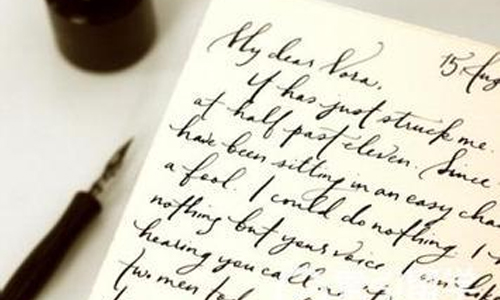 15 Aug
My dear Nora,
It has just struck me.
at half past eleven. Since
have been sitting in an easy cha
a fool. I could do nothing. I
nothing but your voice. I am
hearing you call
two men to